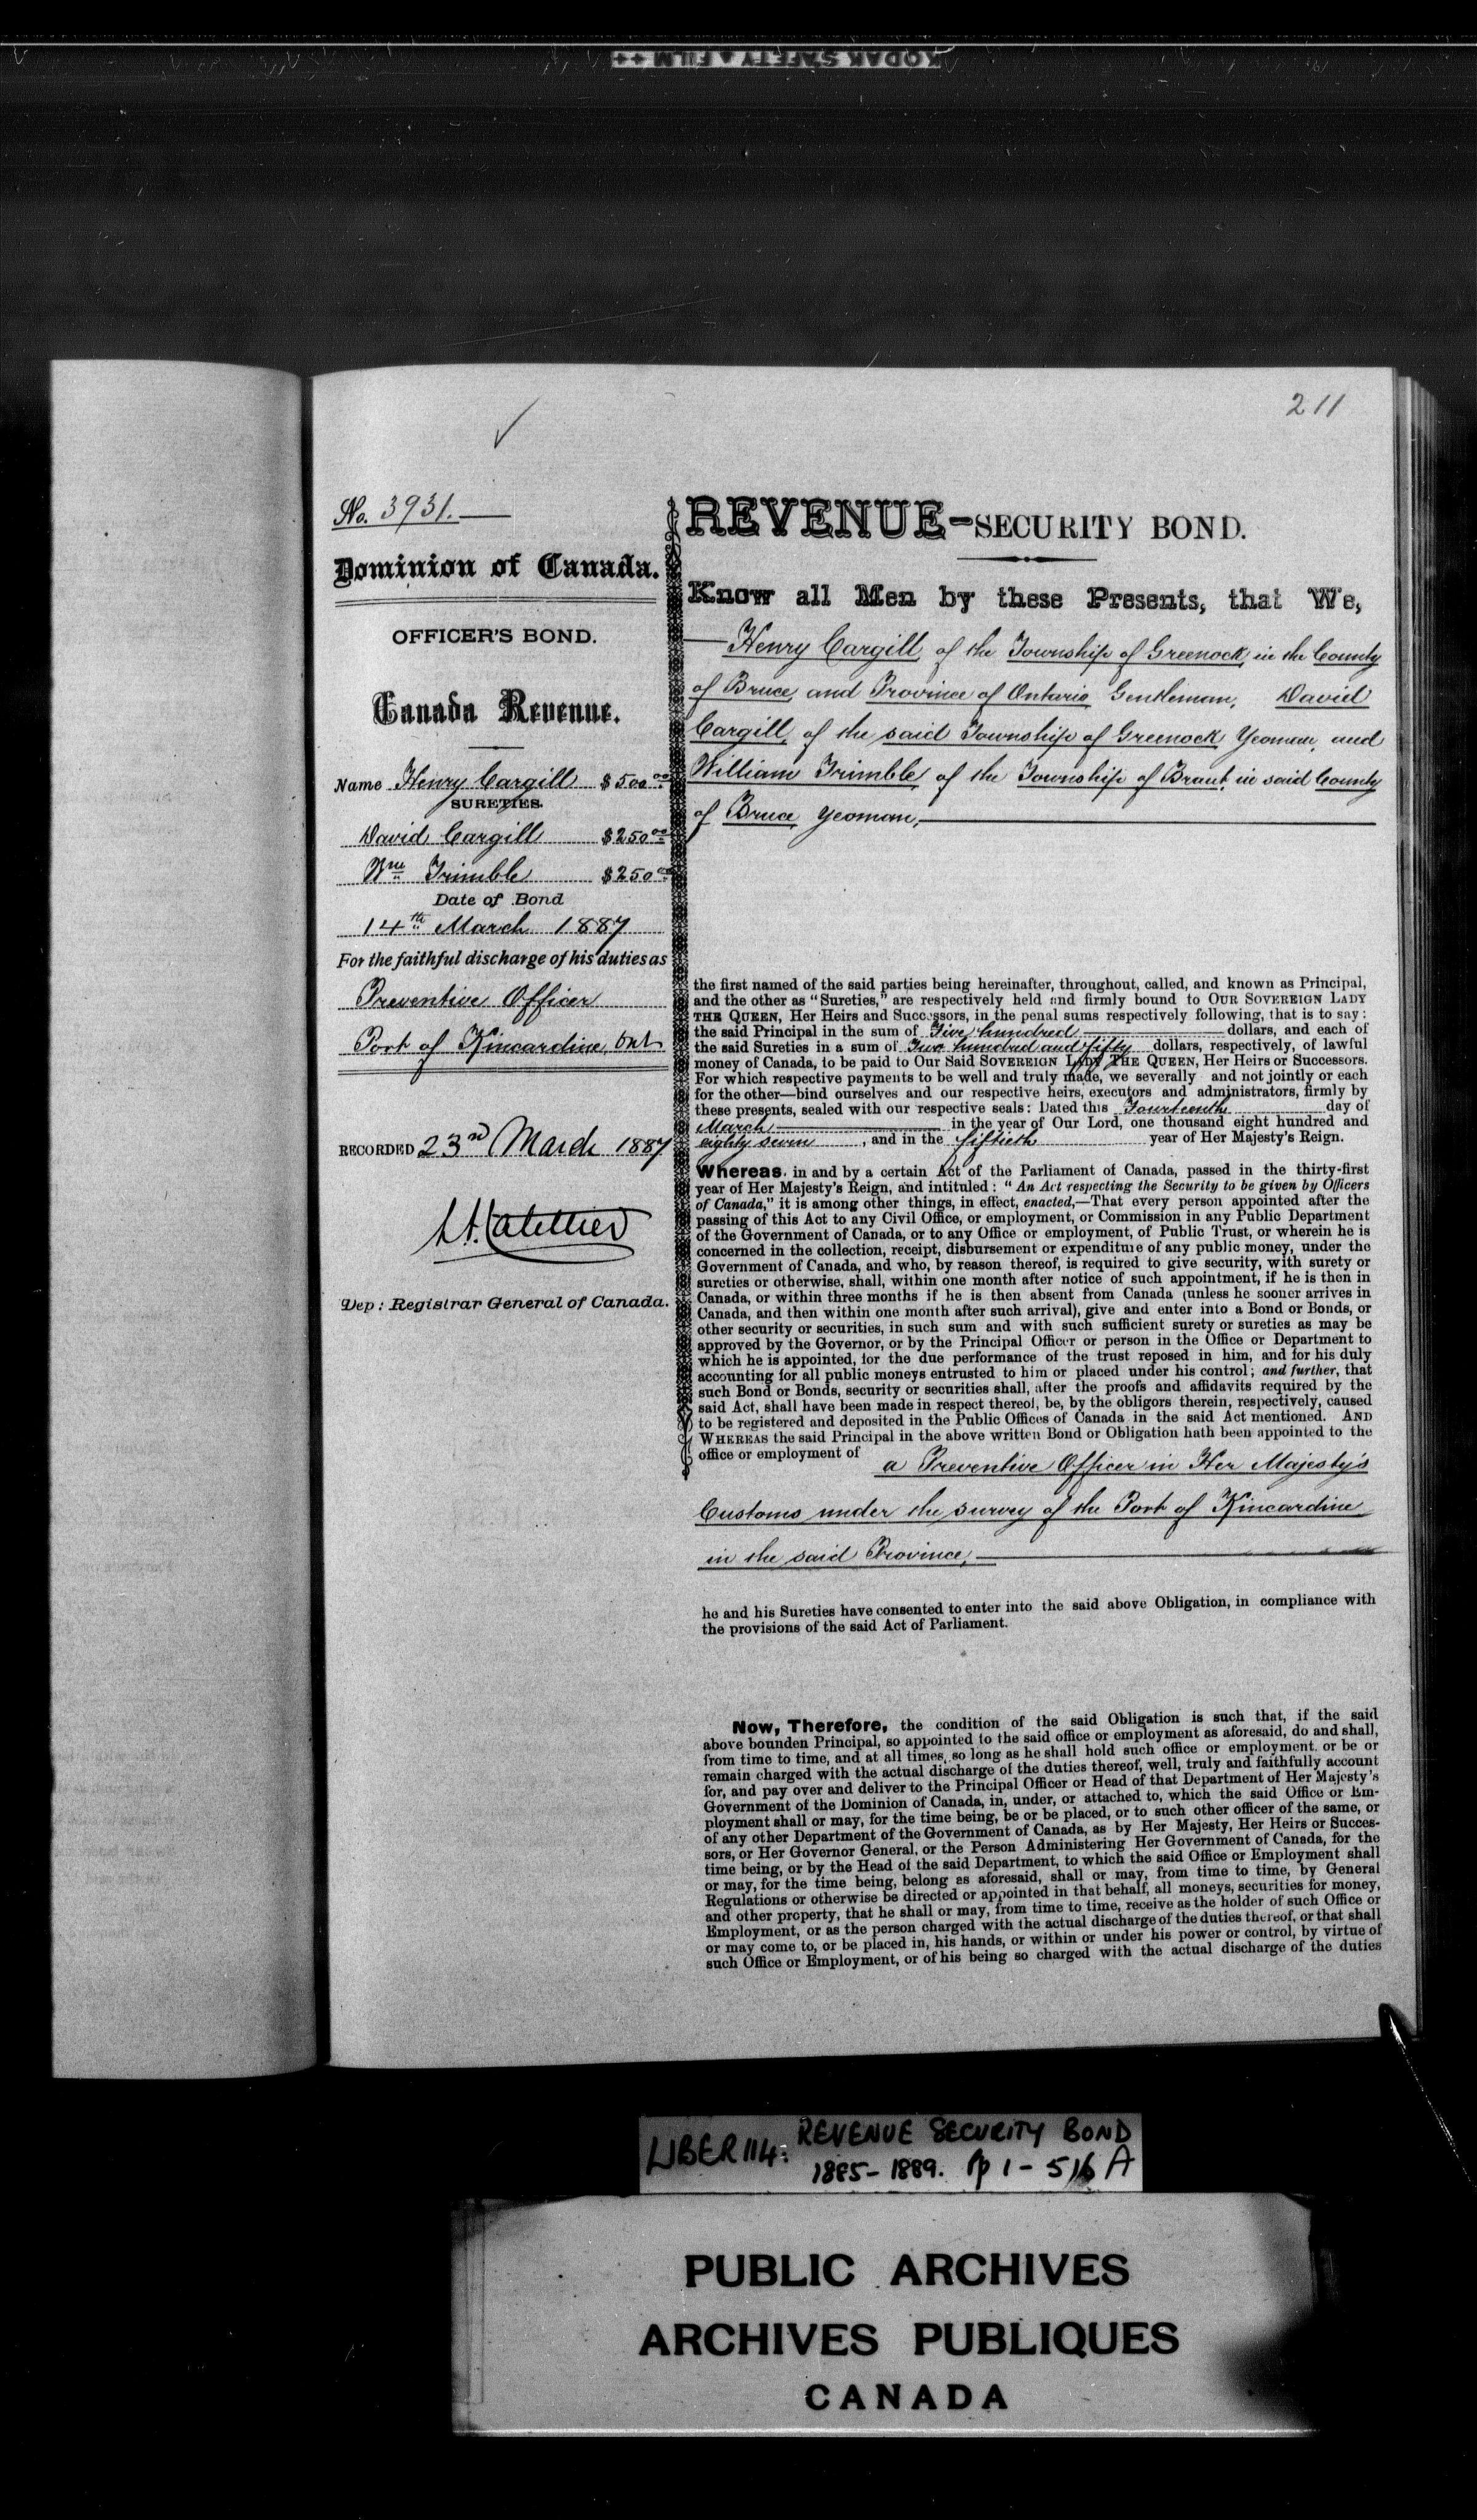 KODAK SAFETY FILM ++
211
No. 3931.
Dominion of Canada.
OFFICER'S BOND.
Canada Revenue.
Name Henry Cargill $500.00
SURETIES.
David Cargill $250.00
Wm Trimble $250.00
Date of Bond
14th March 1887
For the faithful discharge of his duties as
Preventive Officer
Port of Kincardine, Ont
RECORDED 23rd March 1887
Dep: Registrar General of Canada.
REVENUE-SECURITY BOND.
Know all Men by these Presents, that We,
Henry Cargill, of the Township of Greenock, in the County
of Bruce, and Province of Ontario, Gentleman, David
Cargill, of the said Township of Greenock, Yeoman, and
William Trimble, of the Township of Brant, in said County
of Bruce, Yeoman,
the first named of the said parties being hereinafter, throughout, called, and known as Principal,
and the other as "Sureties," are respectively held and firmly bound to OUR SOVEREIGN LADY
THE QUEEN, Her Heirs and Successors, in the penal sums respectively following, that is to say:
the said Principal in the sum of Five hundred dollars, and each of
the said Sureties in a sum of Two hundred and fifty dollars, respectively, of lawful
money of Canada, to be paid to Our Said SOVEREIGN LADY THE QUEEN, Her Heirs or Successors.
For which respective payments to be well and truly made, we severally and not jointly or each
for the other—bind ourselves and our respective heirs, executors and administrators, firmly by
these presents, sealed with our respective seals: Dated this Fourteenth day of
March in the year of Our Lord, one thousand eight hundred and
eighty seven, and in the fiftieth year of Her Majesty's Reign.
Whereas, in and by a certain Act of the Parliament of Canada, passed in the thirty-first
year of Her Majesty's Reign, and intituled: "An Act respecting the Security to be given by Officers
of Canada," it is among other things, in effect, enacted,—That every person appointed after the
passing of this Act to any Civil Office, or employment, or Commission in any Public Department
of the Government of Canada, or to any Office or employment, of Public Trust, or wherein he is
concerned in the collection, receipt, disbursement or expenditure of any public money, under the
Government of Canada, and who, by reason thereof, is required to give security, with surety or
sureties or otherwise, shall, within one month after notice of such appointment, if he is then in
Canada, or within three months if he is then absent from Canada (unless he sooner arrives in
Canada, and then within one month after such arrival), give and enter into a Bond or Bonds, or
other security or securities, in such sum and with such sufficient surety or sureties as may be
approved by the Governor, or by the Principal Officer or person in the Office or Department to
which he is appointed, for the due performance of the trust reposed in him, and for his duly
accounting for all public moneys entrusted to him or placed under his control; and further, that
such Bond or Bonds, security or securities shall, after the proofs and affidavits required by the
said Act, shall have been made in respect thereof, be, by the obligors therein, respectively, caused
to be registered and deposited in the Public Offices of Canada in the said Act mentioned. AND
WHEREAS the said Principal in the above written Bond or Obligation hath been appointed to the
office or employment of a Preventive Officer in Her Majesty's
Customs under the survey of the Port of Kincardine
in the said Province,
he and his Sureties have consented to enter into the said above Obligation, in compliance with
the provisions of the said Act of Parliament.
Now, Therefore, the condition of the said Obligation is such that, if the said
above bounden Principal, so appointed to the said office or employment as aforesaid, do and shall,
from time to time, and at all times, so long as he shall hold such office or employment. or be or
remain charged with the actual discharge of the duties thereof, well, truly and faithfully account
for, and pay over and deliver to the Principal Officer or Head of that Department of Her Majesty's
Government of the Dominion of Canada, in, under, or attached to, which the said Office or Em-
ployment shall or may, for the time being, be or be placed, or to such other officer of the same, or
of any other Department of the Government of Canada, as by Her Majesty, Her Heirs or Succes-
sors, or Her Governor General, or the Person Administering Her Government of Canada, for the
time being, or by the Head of the said Department, to which the said Office or Employment shall
or may, for the time being, belong as aforesaid, shall or may, from time to time, by General
Regulations or otherwise be directed or appointed in that behalf, all moneys, securities for money,
and other property, that he shall or may, from time to time, receive as the holder of such Office or
Employment, or as the person charged with the actual discharge of the duties thereof, or that shall
or may come to, or be placed in, his hands, or within or under his power or control, by virtue of
such Office or Employment, or of his being so charged with the actual discharge of the duties
LIBER 114: REVENUE SECURITY BOND
1885-1889. pp 1-516A
PUBLIC ARCHIVES
ARCHIVES PUBLIQUES
CANADA